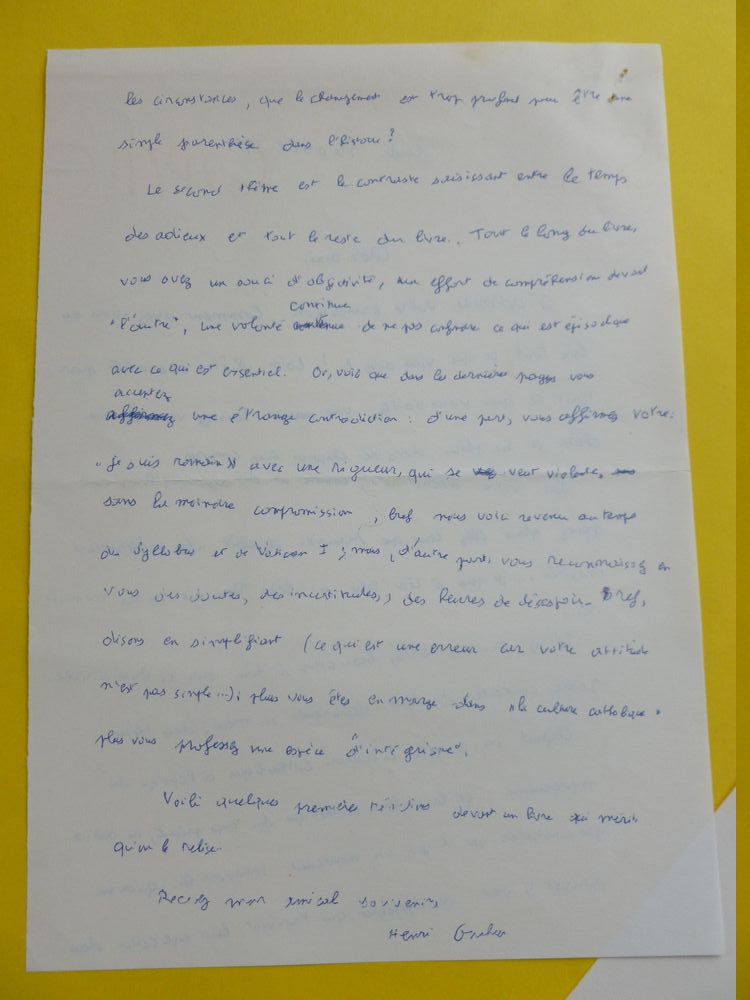 les circonstances, que le changement est trop profond pour être une
simple parenthèse dans l'histoire?
Le second thème est le contraste saisissant entre le temps
des adieux et tout le reste du livre. Tout le long du livre,
vous avez un souci d'objectivité, un effort de compréhension devant
continue
"l'autre", une volonté de ne pas confondre ce qui est épisodique
avec ce qui est essentiel. Or, voici que dans les dernières pages vous
accentuez
affirmez une étrange contradiction : d'une part, vous affirmez votre :
"je suis romain" avec une rigueur, qui se veut violente,
sans la moindre compromission, bref nous voici revenu au temps
du Syllabus et de Vatican I ; mais, d'autre part, vous reconnaissez en
vous des doutes, des incertitudes, des heures de désespoir. Bref,
disons en simplifiant (ce qui est une erreur car votre attitude
n'est pas simple...): plus vous êtes en marge dans "la culture catholique"
plus vous professez une espèce "d'intégrisme".
Voilà quelques premières réactions devant un livre qui mérite
qu'on le relise.
Recevez mon amical souvenir,
Henri Gouhier